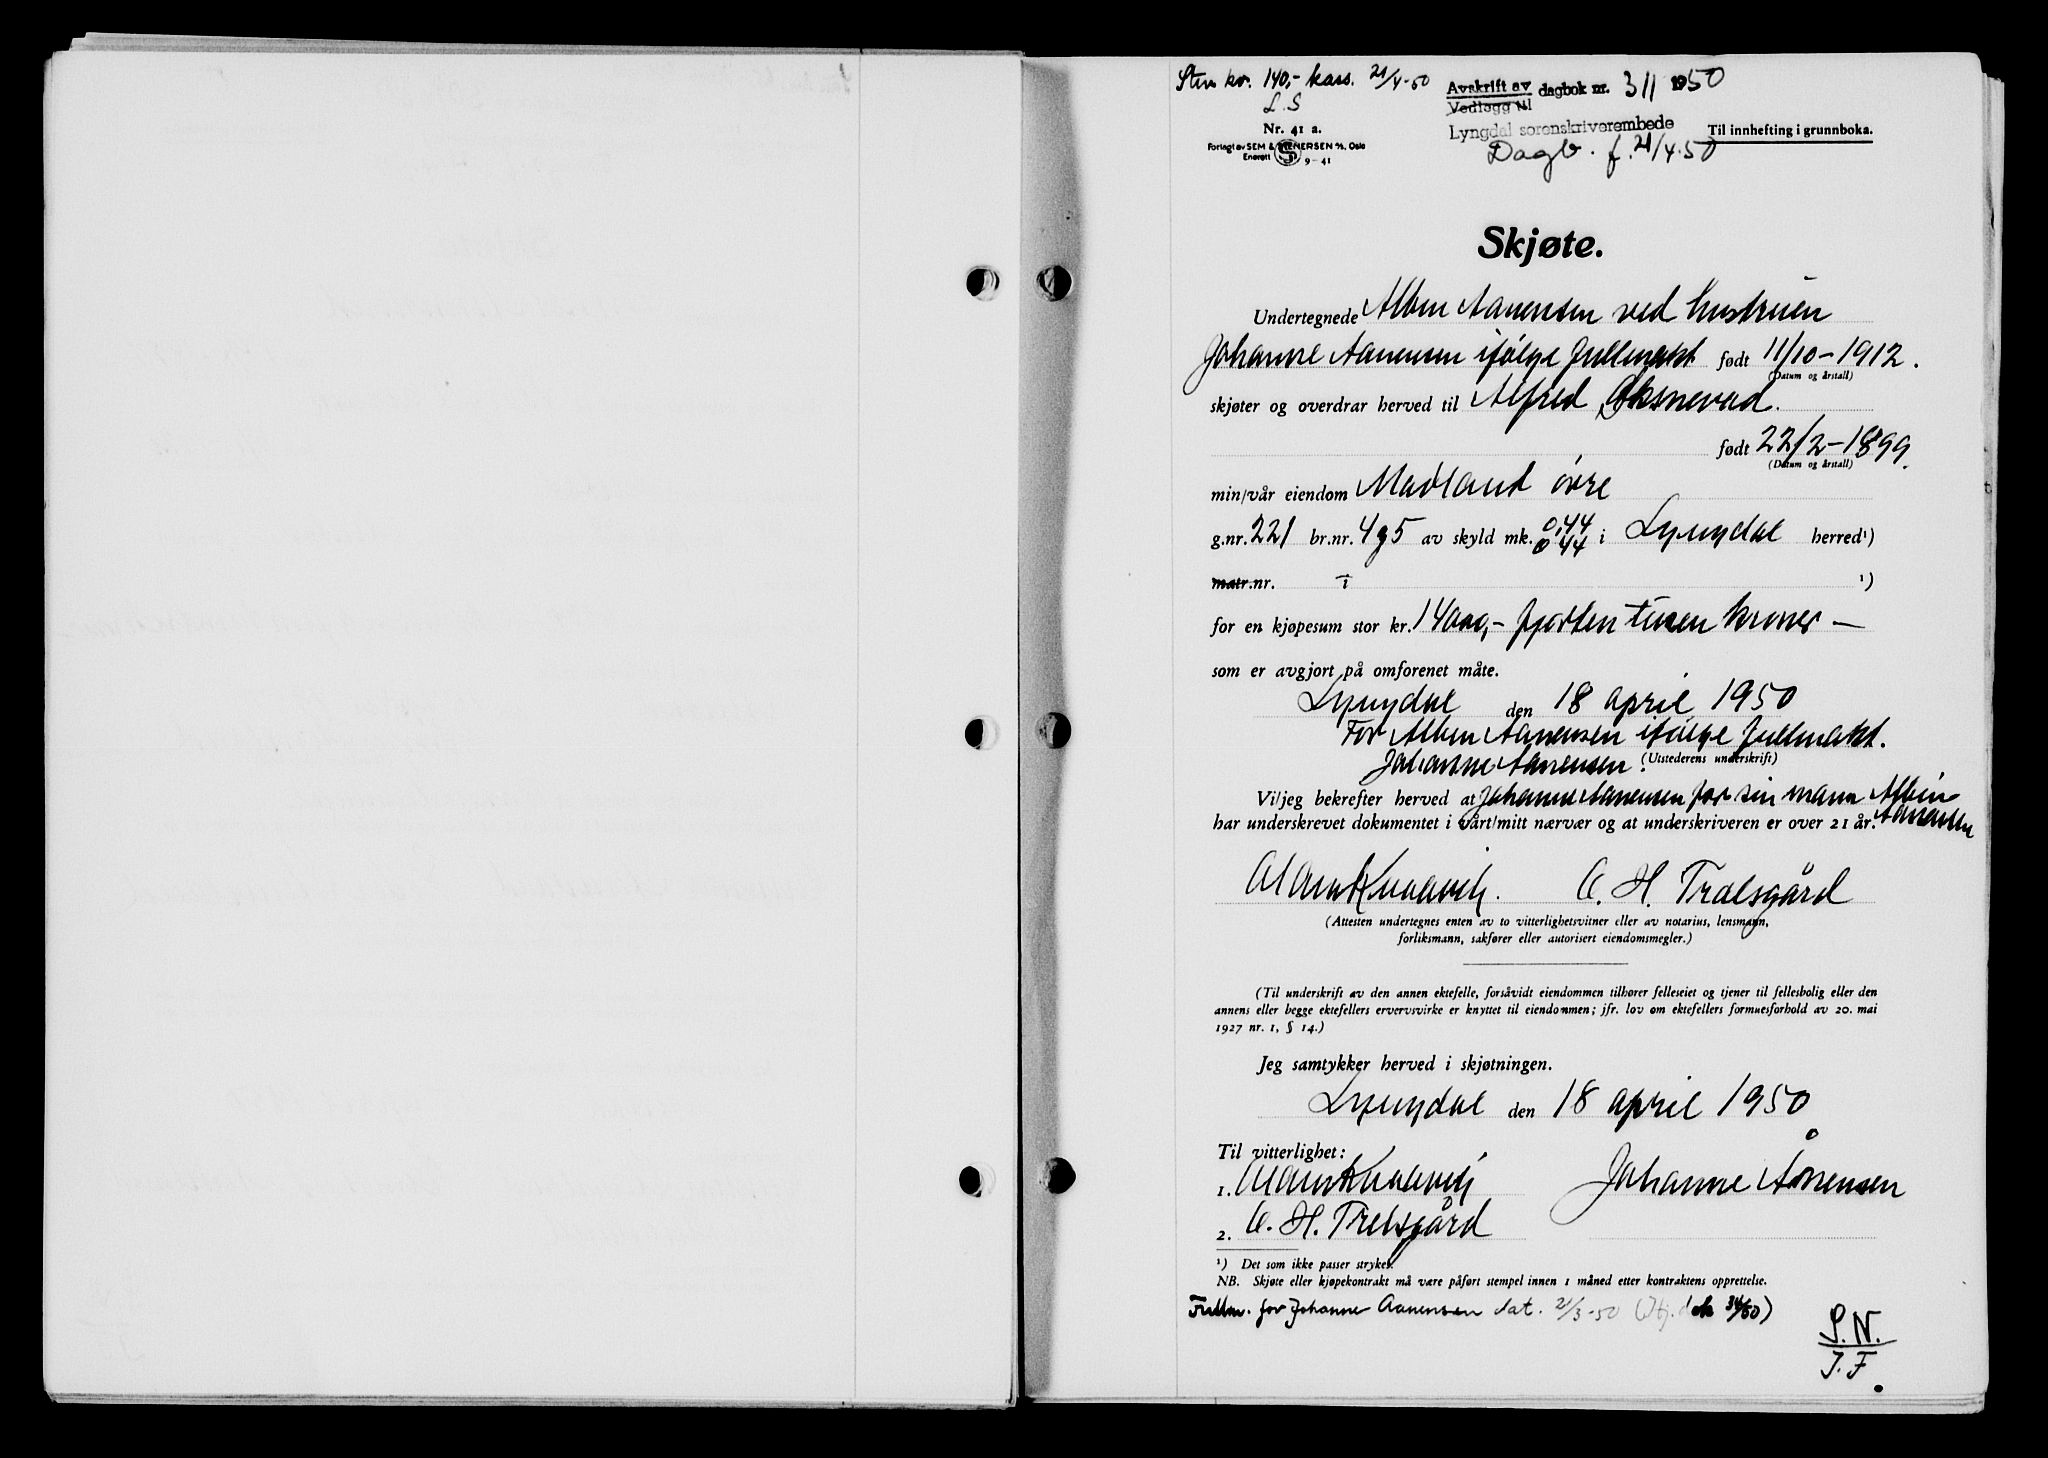 Stem kr. 140,- kass. 21/4-50
L.S
Avskrift av dagbok nr. 311 1950
Vedlegg til
Lyngdal sorenskriverembede
Nr. 41 a.
Til innhefting i grunnboka.
Forlagt av SEM & STENERSEN A/S, Oslo
Enerett S 9-41
Dagb. f. 21/4.50
Skjøte.
Undertegnede Albin Aanensen ved hustruen
Johanne Aanensen ifølge fullmakt født 11/10-1912.
(Datum og årstall)
skjøter og overdrar herved til Alfred Øksnevad.
født 22/2-1899.
(Datum og årstall)
min/vår eiendom Madland øvre
g.nr. 221 br.nr. 4 g 5 av skyld mk. 0,44 0,44 i Lyngdal herred¹)
matr.nr. i ¹)
for en kjøpesum stor kr. 14000,- fjorten tusen kroner —
som er avgjort på omforenet måte.
Lyngdal den 18 april 1950
For Albin Aanensen ifølge fullmakt.
Johanne Aanensen. (Utstederens underskrift)
Vi/jeg bekrefter herved at Johanne Aanensen for sin mann Albin
Aanensen
har underskrevet dokumentet i vårt/mitt nærvær og at underskriveren er over 21 år.
O. H. Trælsgård
(Attesten undertegnes enten av to vitterlighetsvitner eller av notarius, lensmann,
forliksmann, sakfører eller autorisert eiendomsmegler.)
(Til underskrift av den annen ektefelle, forsåvidt eiendommen tilhører felleseiet og tjener til fellesbolig eller den
annens eller begge ektefellers ervervsvirke er knyttet til eiendommen; jfr. lov om ektefellers formuesforhold av 20. mai
1927 nr. 1, § 14.)
Jeg samtykker herved i skjøtningen.
Lyngdal den 18 april 1950
Til vitterlighet:
1.
Johanne Ånensen
2. O. H. Trelsgård
¹) Det som ikke passer strykes.
NB. Skjøte eller kjøpekontrakt må være påført stempel innen 1 måned etter kontraktens opprettelse.
Fullm. for Johanne Aanensen dat. 21/3-50
S.N.
J.F